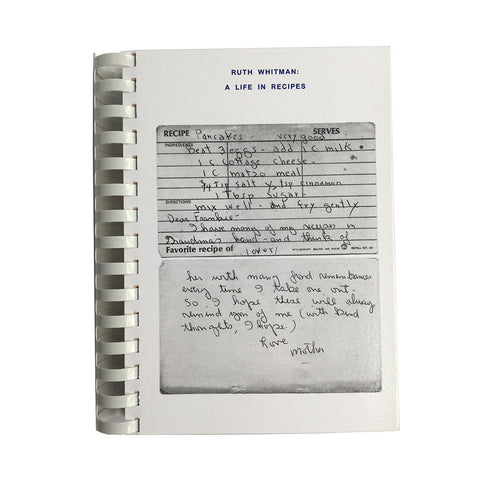 RUTH WHITMAN:
A LIFE IN RECIPES
RECIPE Pancakes - very good SERVES
INGREDIENTS Beat 3 eggs - add 1 C milk
1 C cottage cheese -
1 C matzo meal
3/4 tsp salt 1/2 tsp cinnamon
1 tbsp sugar -
DIRECTIONS mix well - and fry gently
Dear Frankie -
I have many of my recipes in
Grandma's hand - and think of
Favorite recipe of (over)
her with many fond remembrances
every time I take one out.
So I hope these will always
remind you of me (with kind
thoughts, I hope)
Love
Mother